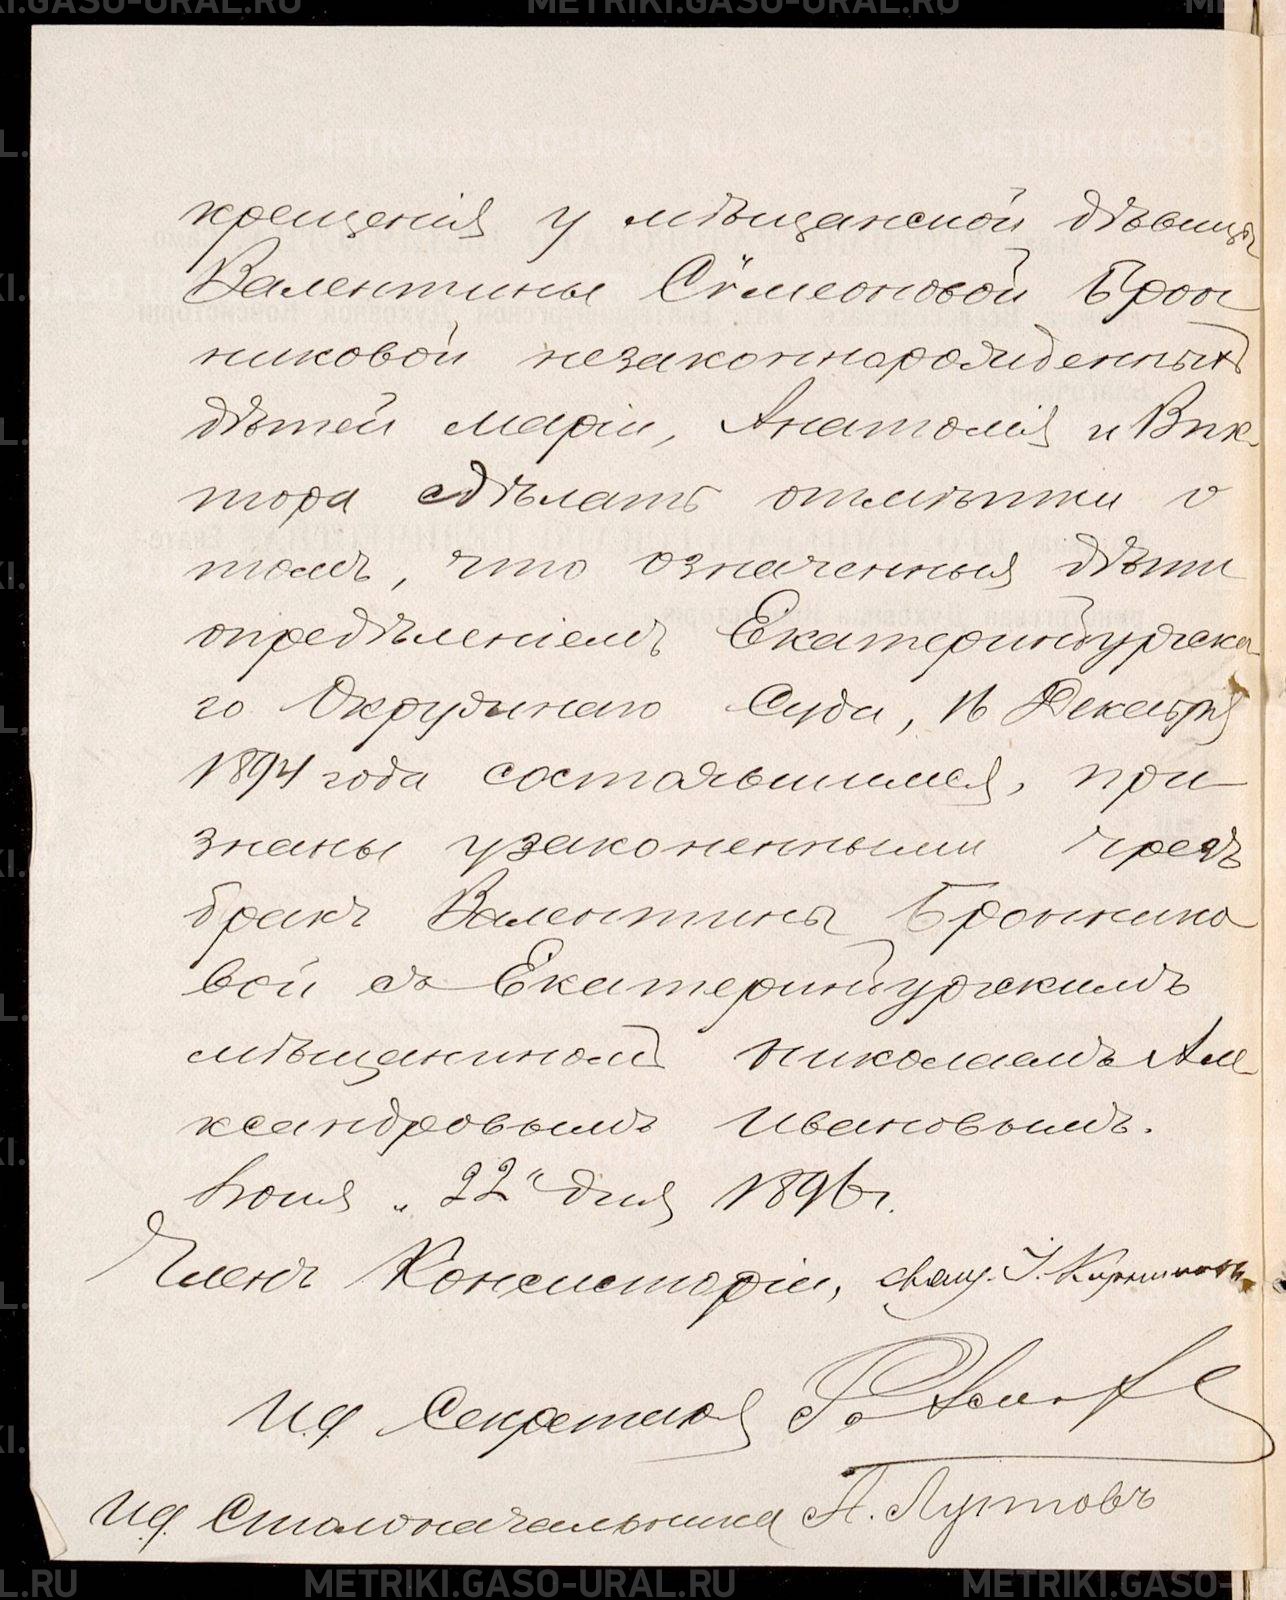 METRIKI.GASO-URAL.RU
крещенія у мѣщанской дѣвицы
Валентины Сѵмеоновой Брон
никовой незаконнорожденныхъ
дѣтей Маріи, Анатолія и Вик-
тора сдѣлать отмѣтки о
томъ, что означенныя дѣти
опредѣленіемъ Екатеринбургска-
го Окружнаго Суда, 16 Декабря
1894 года состоявшимся, при-
знаны узаконенными чрезъ
бракъ Валентины Броннико
вой съ Екатеринбургскимъ
мѣщаниномъ Николаемъ Але
ксандровымъ Ивановымъ.
Іюня „22" дня 1896 г.
Членъ Консисторіи, свящ. І.
И.д. Секретаря
И.д. Столоначальника А.
METRIKI.GASO-URAL.RU